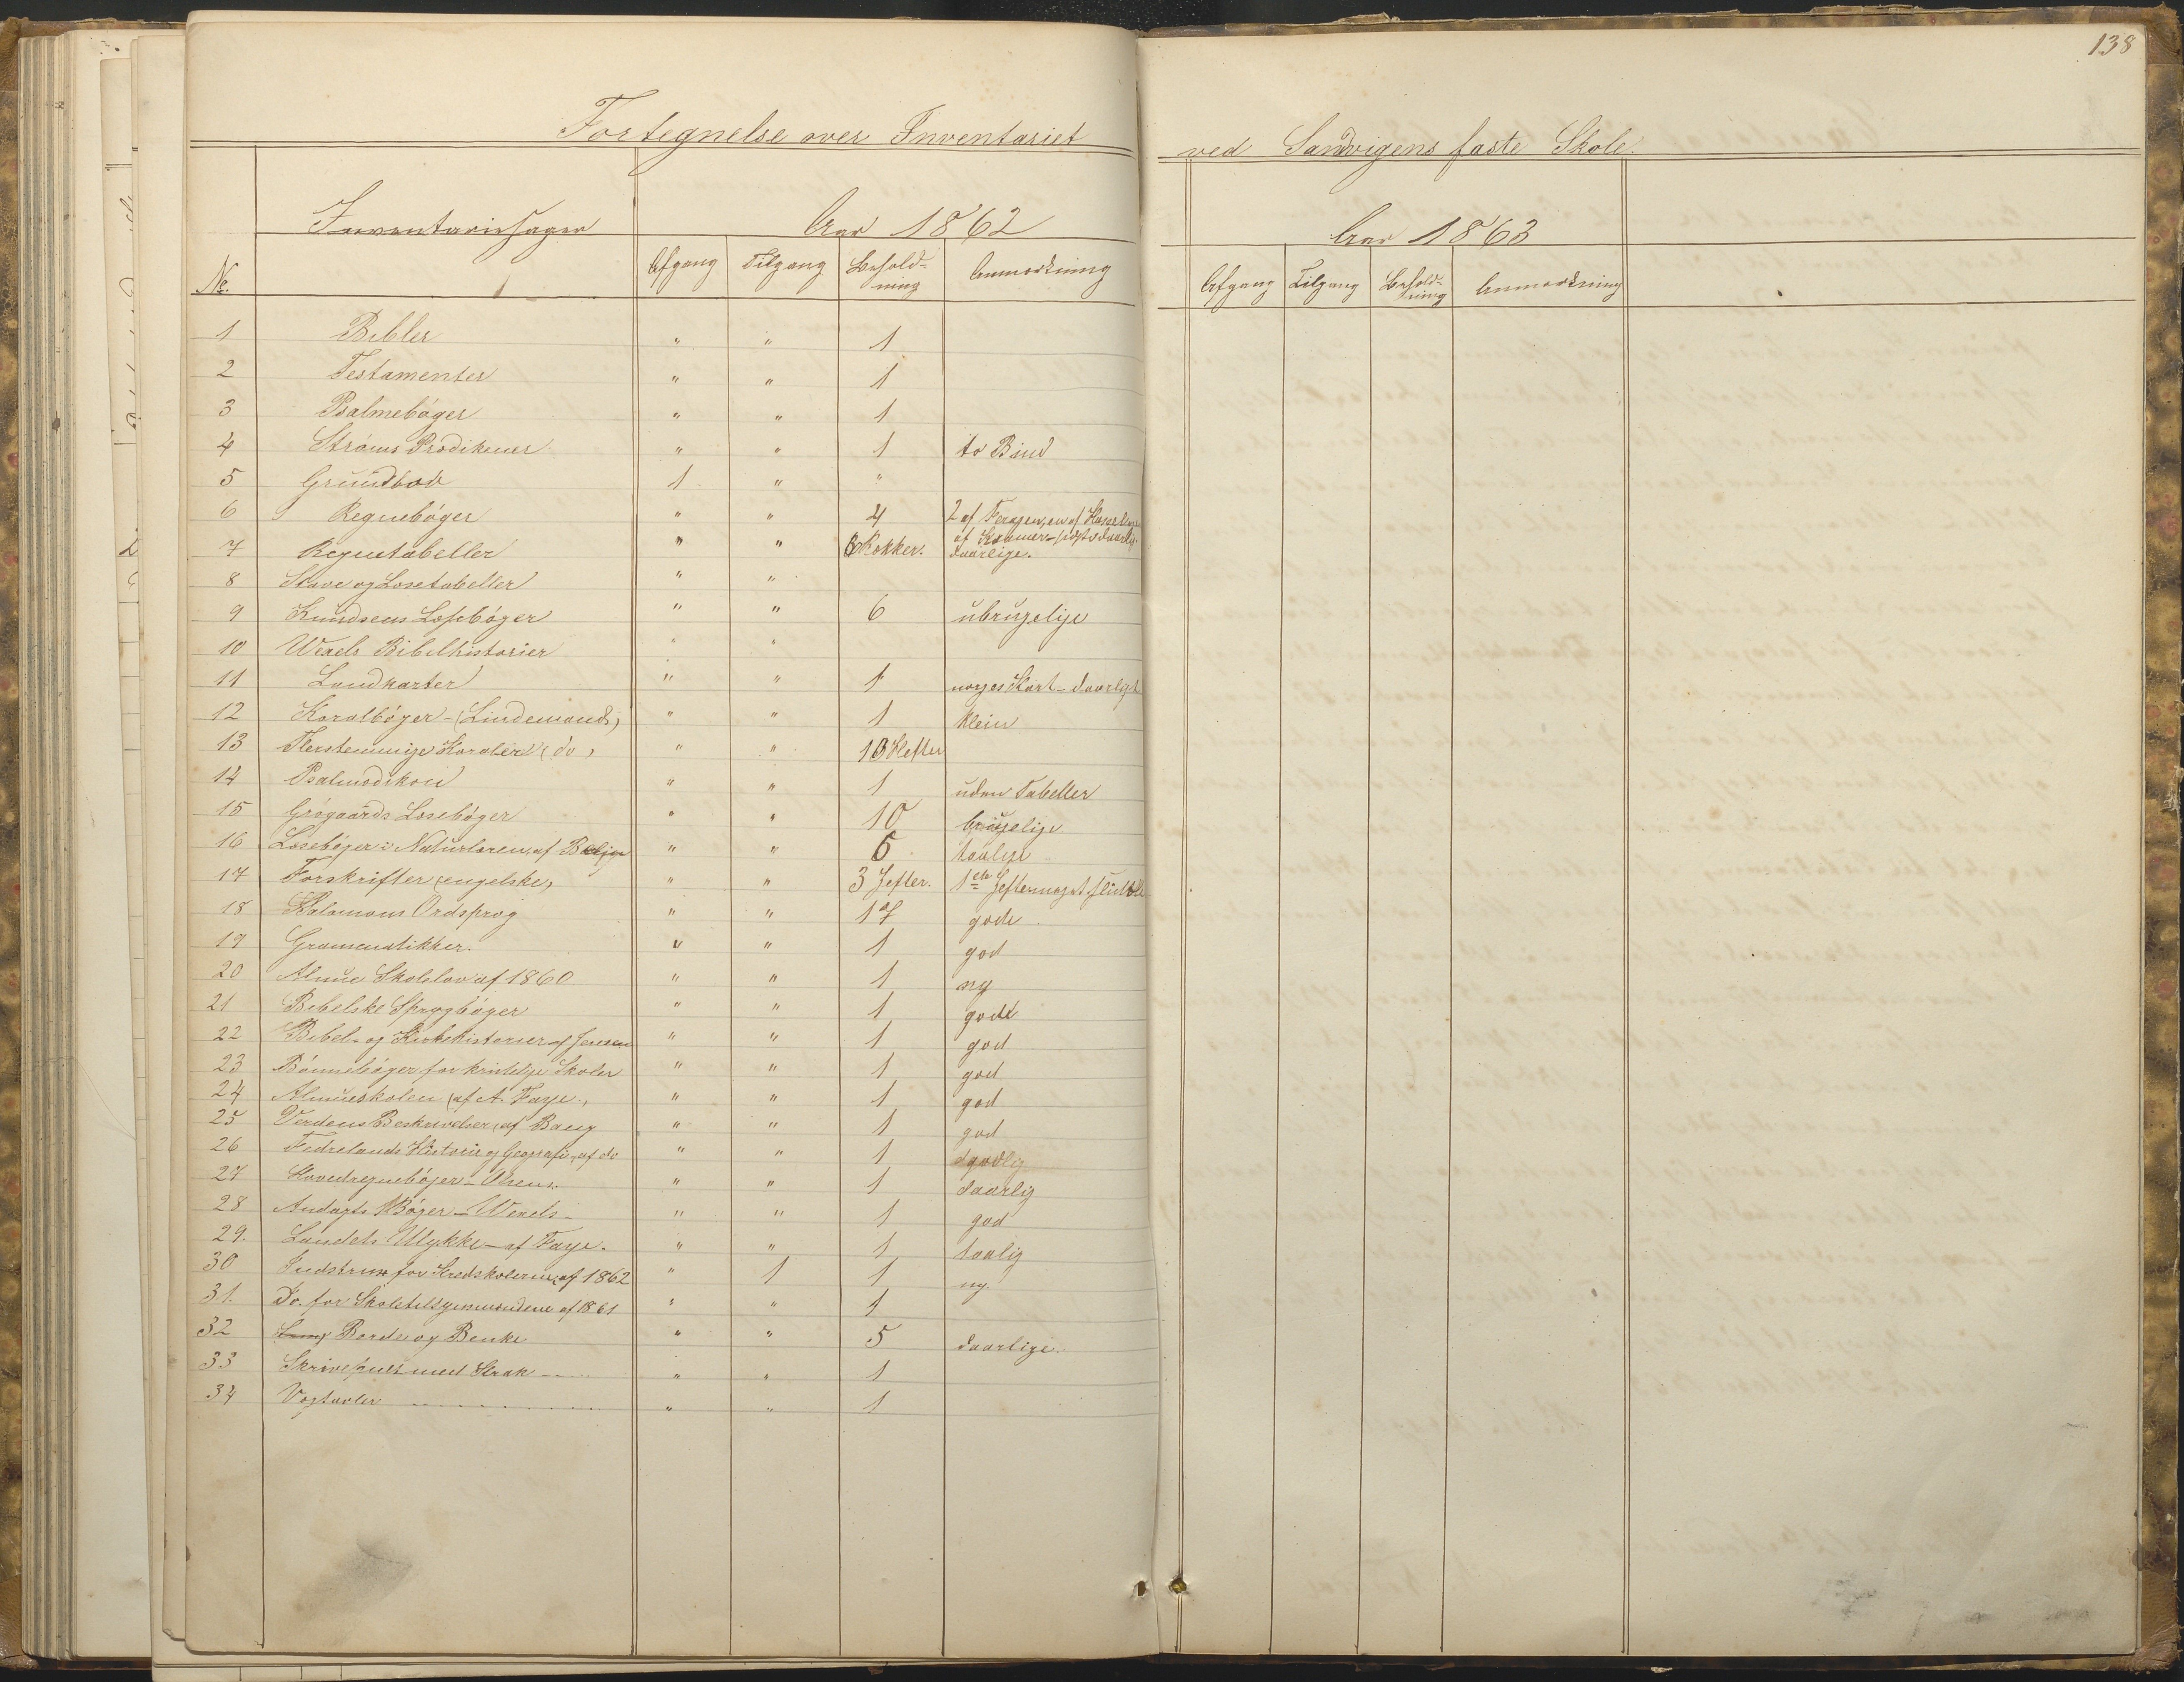 138
Fortegnelse over Inventariet ved Sandvigens faste Skole.
Inventariesager Aar 1862 Aar 1863
No. Afgang Tilgang Behold- Anmærkning Afgang Tilgang Behold- Anmærkning
ning ning
1 Bibler " " 1
2 Testamenter " " 1
3 Psalmebøger " " 1
4 Strøms Prædikener " " 1 to Bind
5 1 " "
6 Regnebøger " " 4 2 af en af
7 Regnetabeller " " 6 Pakker. daarlige.
8 Stave og Læsetabeller " "
9 Knudsens Læsebøger " " 6 ubrugelige
10 Wexels Bibelhistorier " "
11 Landkarter " " 1 norges Kart - daarligt
12 Koralbøger - (Lindemands) " " 1 klein
13 Flerstemmige Koraler (do) " " 10 Hefter
14 Psalmodikon " " 1 uden Tabeller
15 Grøgaards Læsebøger " " 10 brugelige
16 Læsebøger i Naturlæren, af " " 5 taalige
17 Forskrifter (engelske) " " 3 Hefter. 1ste
18 Salomons Ordsprog " " 17 gode
19 Grammatikker. " " 1 god
20 Almue Skolelov af 1860 " " 1 ny
21 Bibelske Sprogbøger " " 1 godt
22 Bibel- og Kirkehistorier af Jensen " " 1 god
23 Bønnebøger for kristelige Skoler " " 1 god
24 Almueskolen (af A. Faye.) " " 1 god
25 Verdens Beskrivelser, af Bang " " 1 god
26 Fedrelands Historie og Geografi, af do " " 1
27 Hovedregnebøger - Olsens. " " 1 daarlig
28 Andagts Bøger - Wexels - " " 1 god
29. Landets Ulykke - af Faye. " " 1 taalig
30 for Kredsskolerne, af 1862 " 1 1 ny.
31. Do. for Skoletilsynsmændene af 1861 " " 1
32 Borde og Benke " " 5 daarlige.
33 Skrivepult med Skrak - - - " " 1
34 Vægtavler . . . . . . . . " " 1